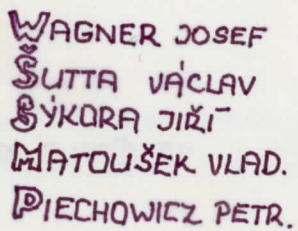 WAGNER JOSEF
ŠUTTA VÁCLAV
SÝKORA JIŘÍ
MATOUŠEK VLAD.
PIECHOWICZ PETR.